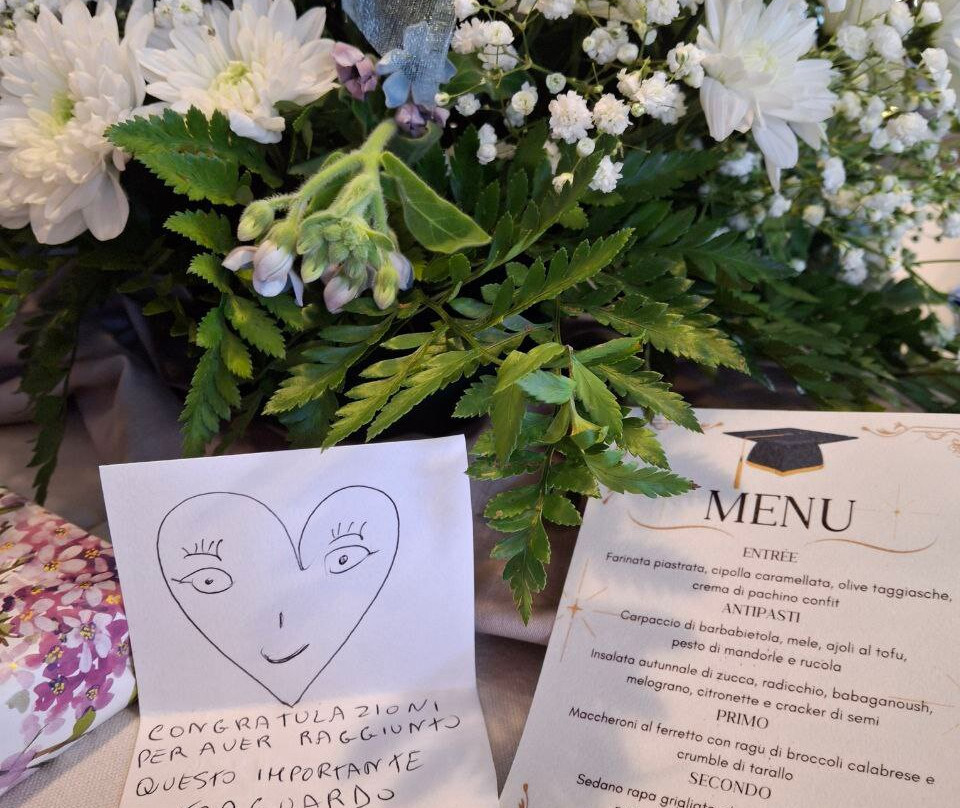 CONGRATULAZIONI
PER AVER RAGGIUNTO
QUESTO IMPORTANTE
MENU
ENTRÉE
Farinata piastrata, cipolla caramellata, olive taggiasche,
crema di pachino confit
ANTIPASTI
Carpaccio di barbabietola, mele, ajoli al tofu,
pesto di mandorle e rucola
Insalata autunnale di zucca, radicchio, babaganoush,
melograno, citronette e cracker di semi
PRIMO
Maccheroni al ferretto con ragu di broccoli calabrese e
crumble di tarallo
SECONDO
Sedano rapa grigliato